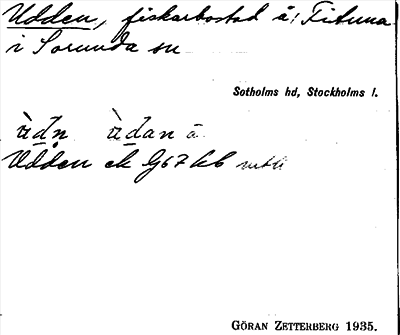 Udden, fiskarbostad å: Fituna
i Sorunda sn
Sotholms hd, Stockholms l.
ùdn ùdan ä
Udden ek G67 kb
GÖRAN ZETTERBERG 1935.